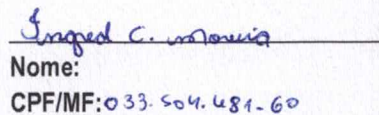 Ingred C. Moreira
Nome:
CPF/MF:033.504.481-60